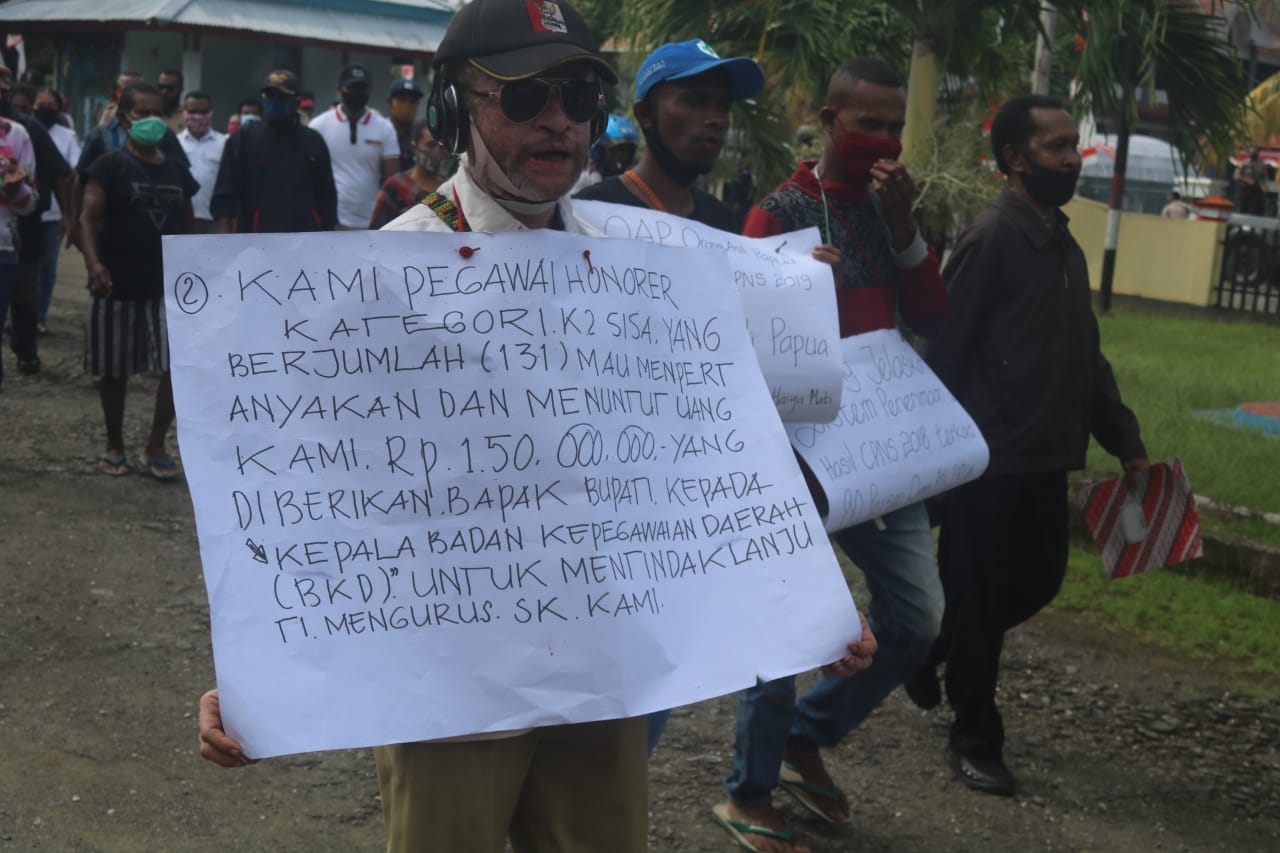 2. KAMI PEGAWAI HONORER
KATEGORI.K2 SISA, YANG
BERJUMLAH (131) MAU MENPERT
ANYAKAN DAN MENUNTUT UANG
KAMI. Rp. 150.000.000,- YANG
DIBERIKAN. BAPAK BUPATI. KEPADA
KEPALA BADAN KEPEGAWAIAN DAERAH
(BKD)." UNTUK MENTINDAKLANJU
TI. MENGURUS. SK. KAMI.
OAP Orang Asli Papua
CPNS 2019
Papua
Harga Mati
Hasil CPNS 2018